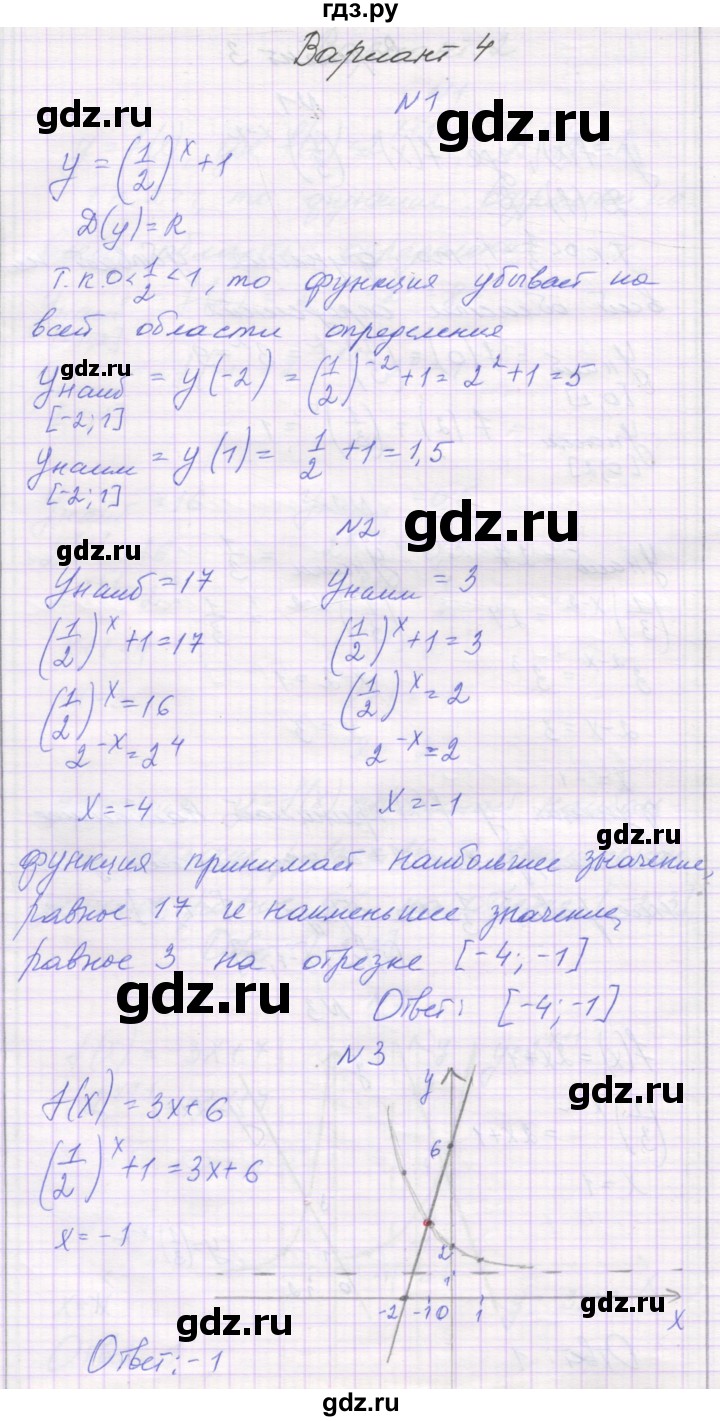 гдз.ру
Вариант 4
gdz.ru
N1
y = (1/2)^x + 1
D(y) = R
Т.к. 0 < 1/2 < 1, то функция убывает на
всей области определения
gdz.ru
yнаиб = y(-2) = (1/2)^-2 + 1 = 2^2 + 1 = 5
[-2; 1]
yнаим = y(1) = 1/2 + 1 = 1,5
[-2; 1]
gdz.ru
N2
gdz.ru
yнаиб = 17 yнаим = 3
(1/2)^x + 1 = 17 (1/2)^x + 1 = 3
(1/2)^x = 16 (1/2)^x = 2
2^-x = 2^4 2^-x = 2
x = -4 x = -1
gdz.ru
функция принимает наибольшее значение,
равное 17 и наименьшее значение,
равное 3 на отрезке [-4; -1]
gdz.ru
Ответ: [-4; -1]
N3
f(x) = 3x + 6
(1/2)^x + 1 = 3x + 6
x = -1
y
6
2
1
-2 -1 0 1
x
gdz.ru
gdz.ru
gdz.ru
Ответ: -1
gdz.ru